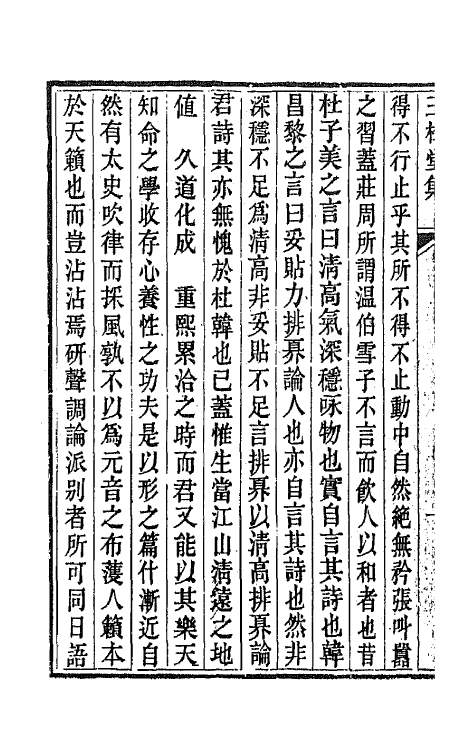 得不行止乎其所不得不止動中自然絶無矜張叫囂
之習蓋莊周所謂温伯雪子不言而飲人以和者也昔
杜子美之言曰清高氣深穩咏物也實自言其詩也韓
昌黎之言曰妥貼力排奡論人也亦自言其詩也然非
深穩不足爲清高非妥貼不足言排奡以清高排奡論
君詩其亦無愧於杜韓也已蓋惟生當江山清遠之地
值 久道化成 重熙累洽之時而君又能以其樂天
知命之學收存心養性之功夫是以形之篇什漸近自
然有太史吹律而採風孰不以爲元音之布濩人籟本
於天籟也而豈沾沾焉研聲調論派别者所可同日語